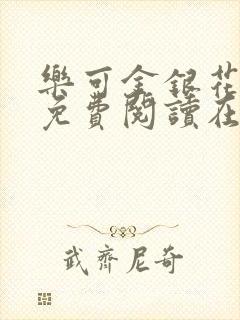 樂可金銀花
免費閱讀在
武齊尼奇